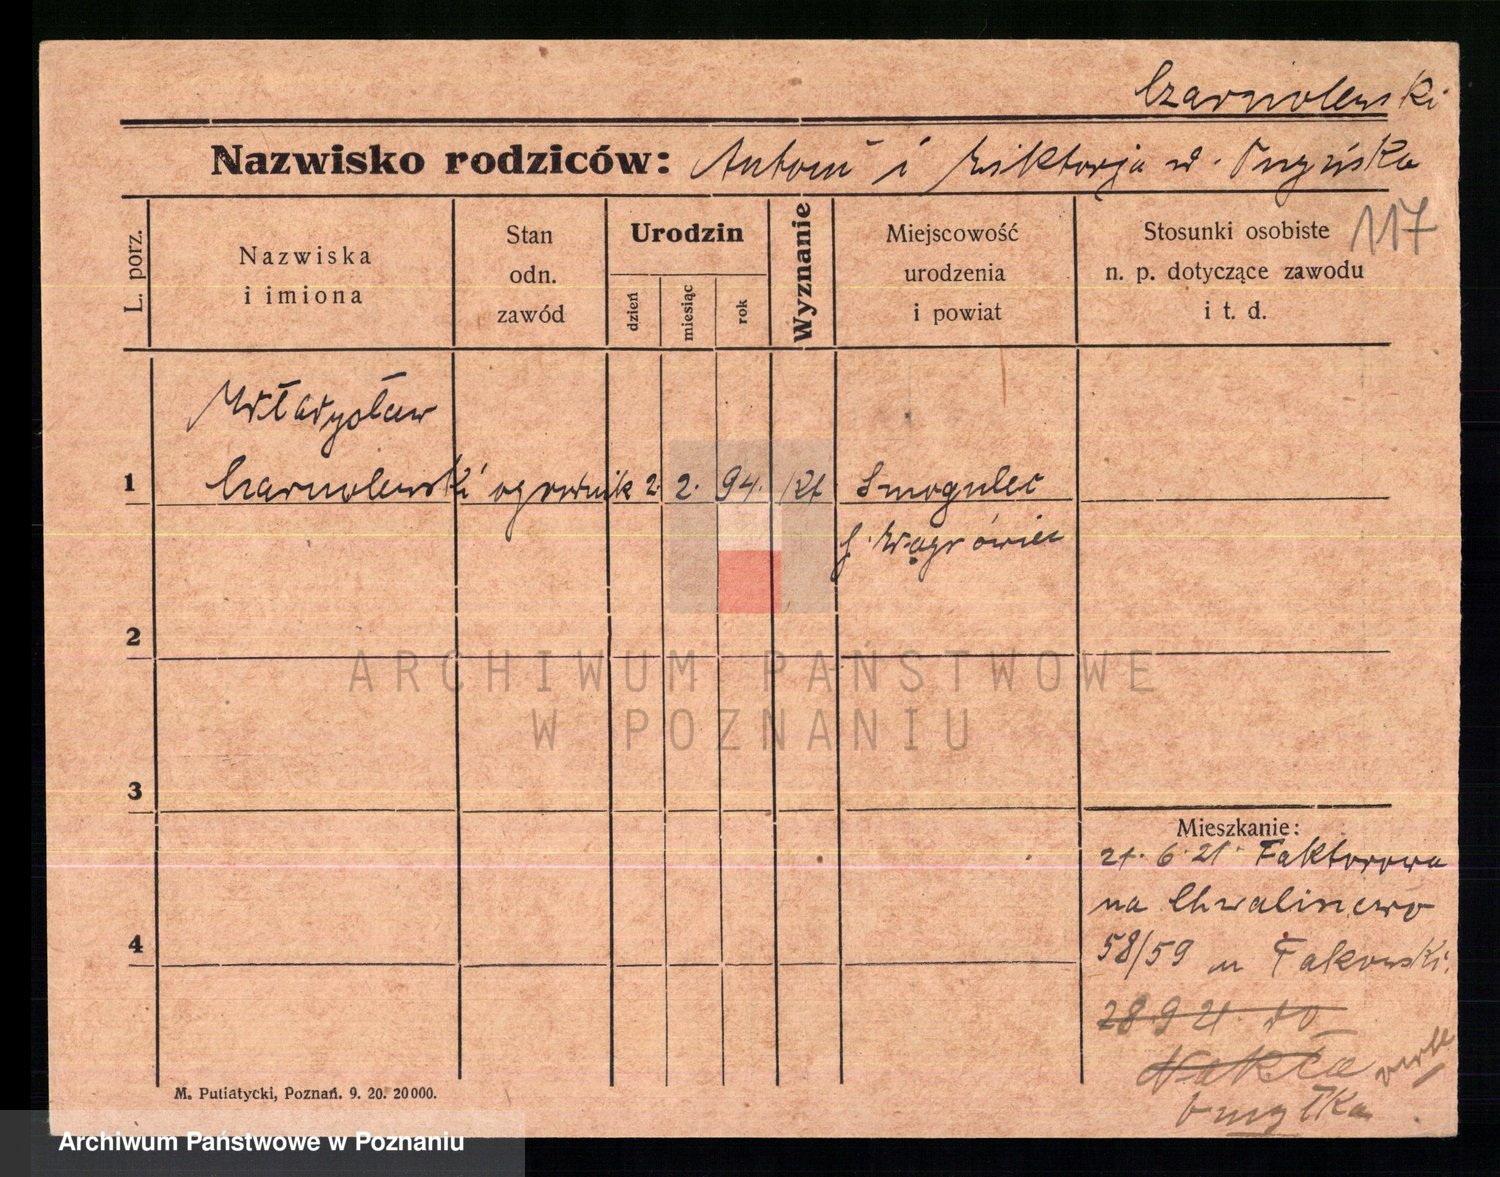 Czarnolewski
Nazwisko rodziców: Antoni i Wiktorja d.
117
L. porz.
Nazwiska
i imiona
Stan
odn.
zawód
Urodzin
dzień
miesiąc
rok
Wyznanie
Miejscowość
urodzenia
i powiat
Stosunki osobiste
n. p. dotyczące zawodu
i t. d.
Władysław
1 Czarnolewski ogrodnik 2. 2. 94. Kt Smogulec
p. Wągrówiec
2
ARCHIWUM PAŃSTWOWE
W POZNANIU
3
Mieszkanie:
21. 6. 21. Faktorowa
na Chwalincewo
4
58/59 u Fakowski.
28 9 21. do
Nakła verte
omyłka
M. Putiatycki, Poznań. 9. 20. 20000.
Archiwum Państwowe w Poznaniu